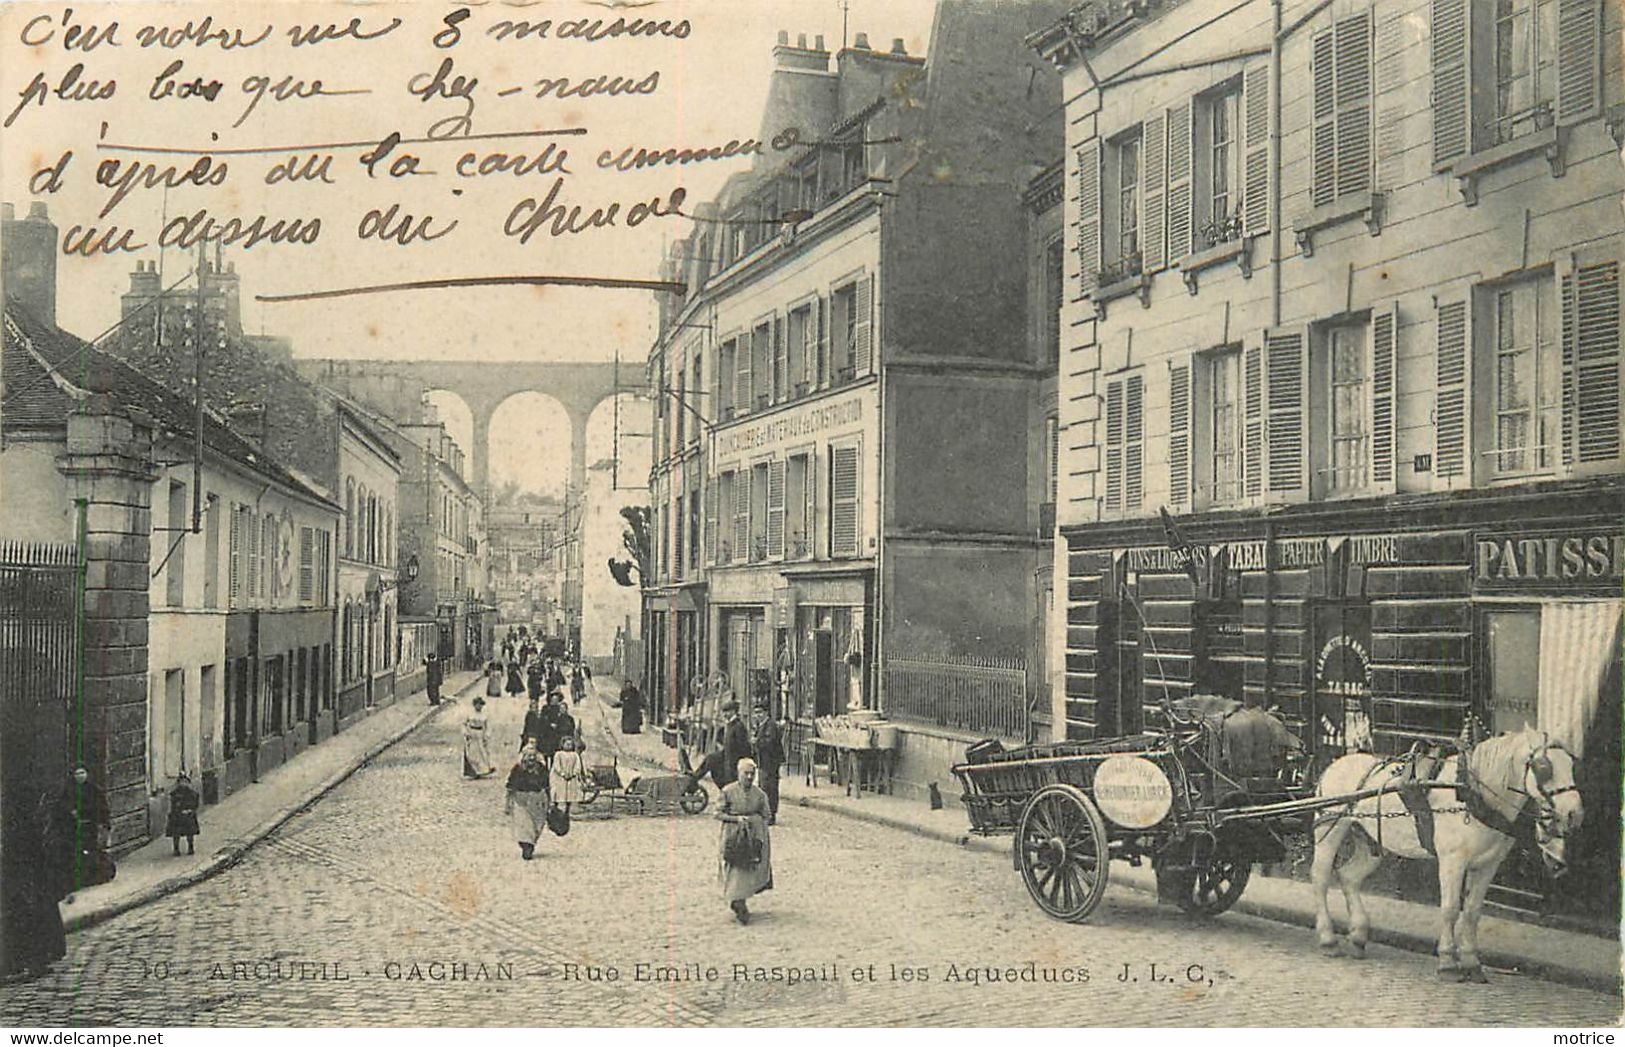 C'en notre rue 8 maisons
plus bas que chez-nous
d'après ou la carte commence
au dessus du cheval
QUINCAILLERIE et MATERIAUX de CONSTRUCTION
VINS & LIQUEURS TABAC PAPIER TIMBRE
PATISSE
TABAC
10. - ARCUEIL - CACHAN - Rue Emile Raspail et les Aqueducs J. L. C.
motrice